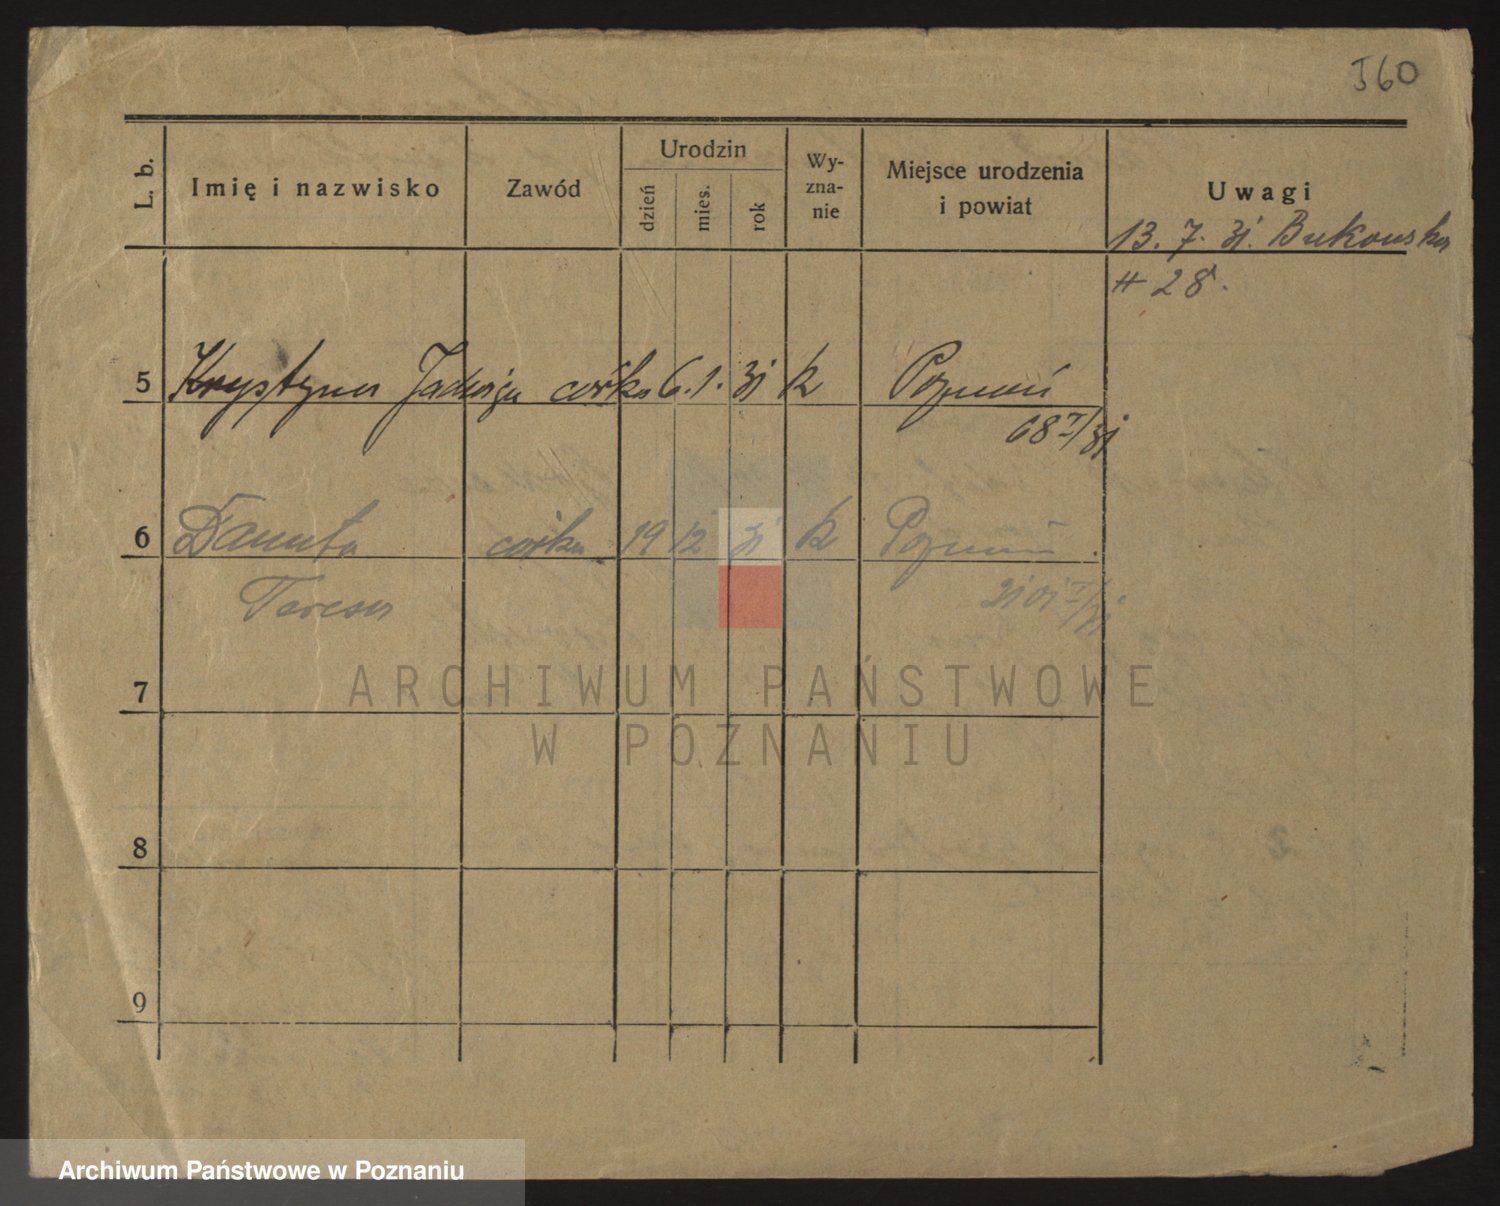 J60
L. b.
Imię i nazwisko
Zawód
Urodzin
dzień
mies.
rok
Wy-
zna-
nie
Miejsce urodzenia
i powiat
Uwagi
13. 7. 31. Bukowska
# 28.
5 Krystyna Jadwiga córka 6. 1. 31 k Poznań
68 I/31
6 Danuta córka 19 12 31 k Poznań
Teresa
7
ARCHIWUM PAŃSTWOWE
W POZNANIU
8
9
Archiwum Państwowe w Poznaniu